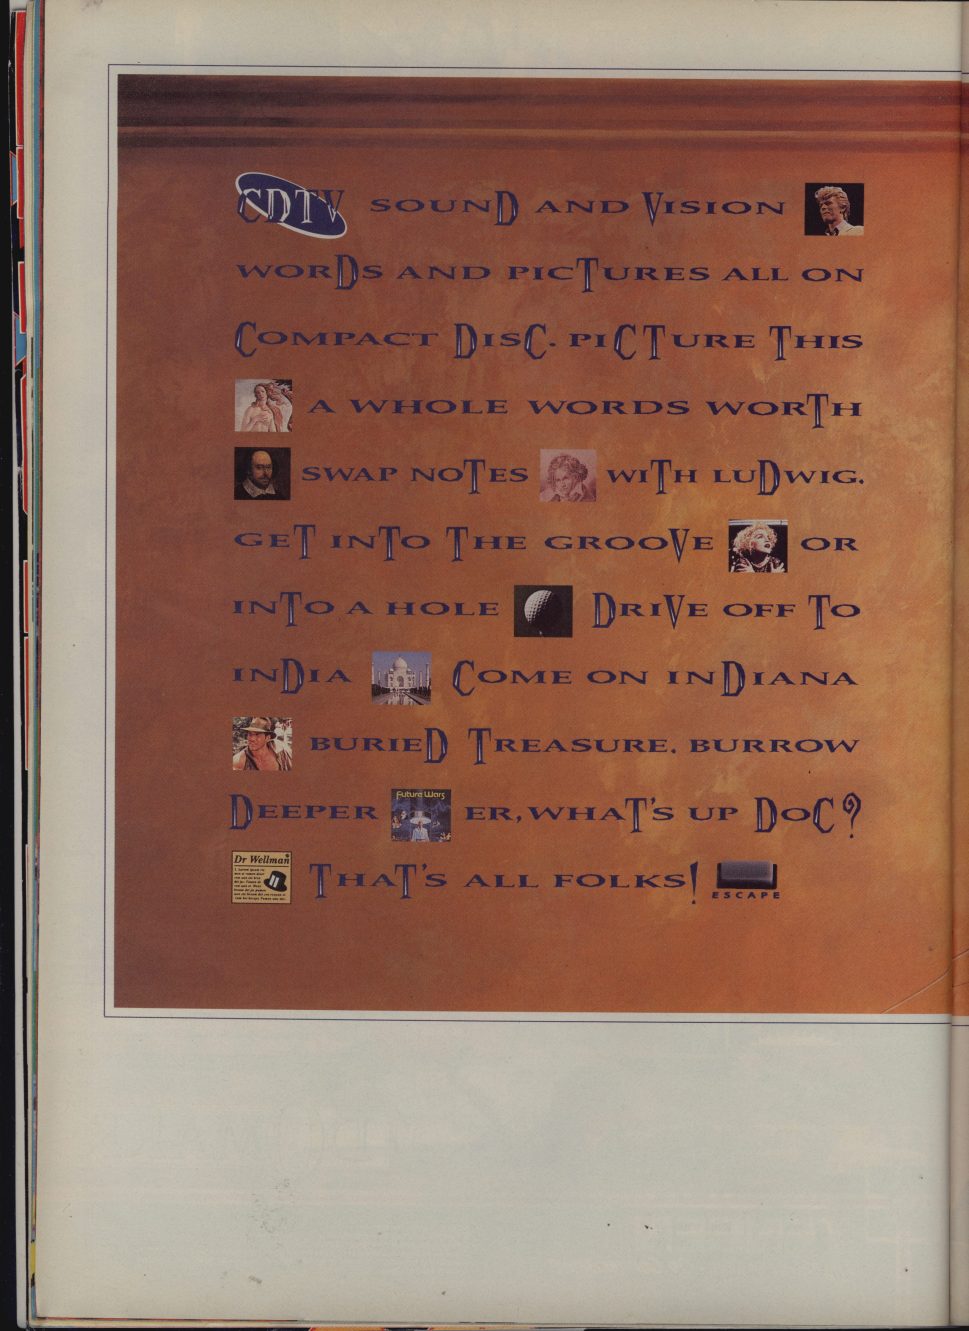 CDTV SOUND AND VISION
WORDS AND PICTURES ALL ON
COMPACT DISC. PICTURE THIS
A WHOLE WORDS WORTH
SWAP NOTES WITH LUDWIG.
GET INTO THE GROOVE OR
INTO A HOLE DRIVE OFF TO
INDIA COME ON INDIANA
BURIED TREASURE. BURROW
DEEPER Future Wars ER, WHAT'S UP DOC?
Dr Wellman THAT'S ALL FOLKS! ESCAPE